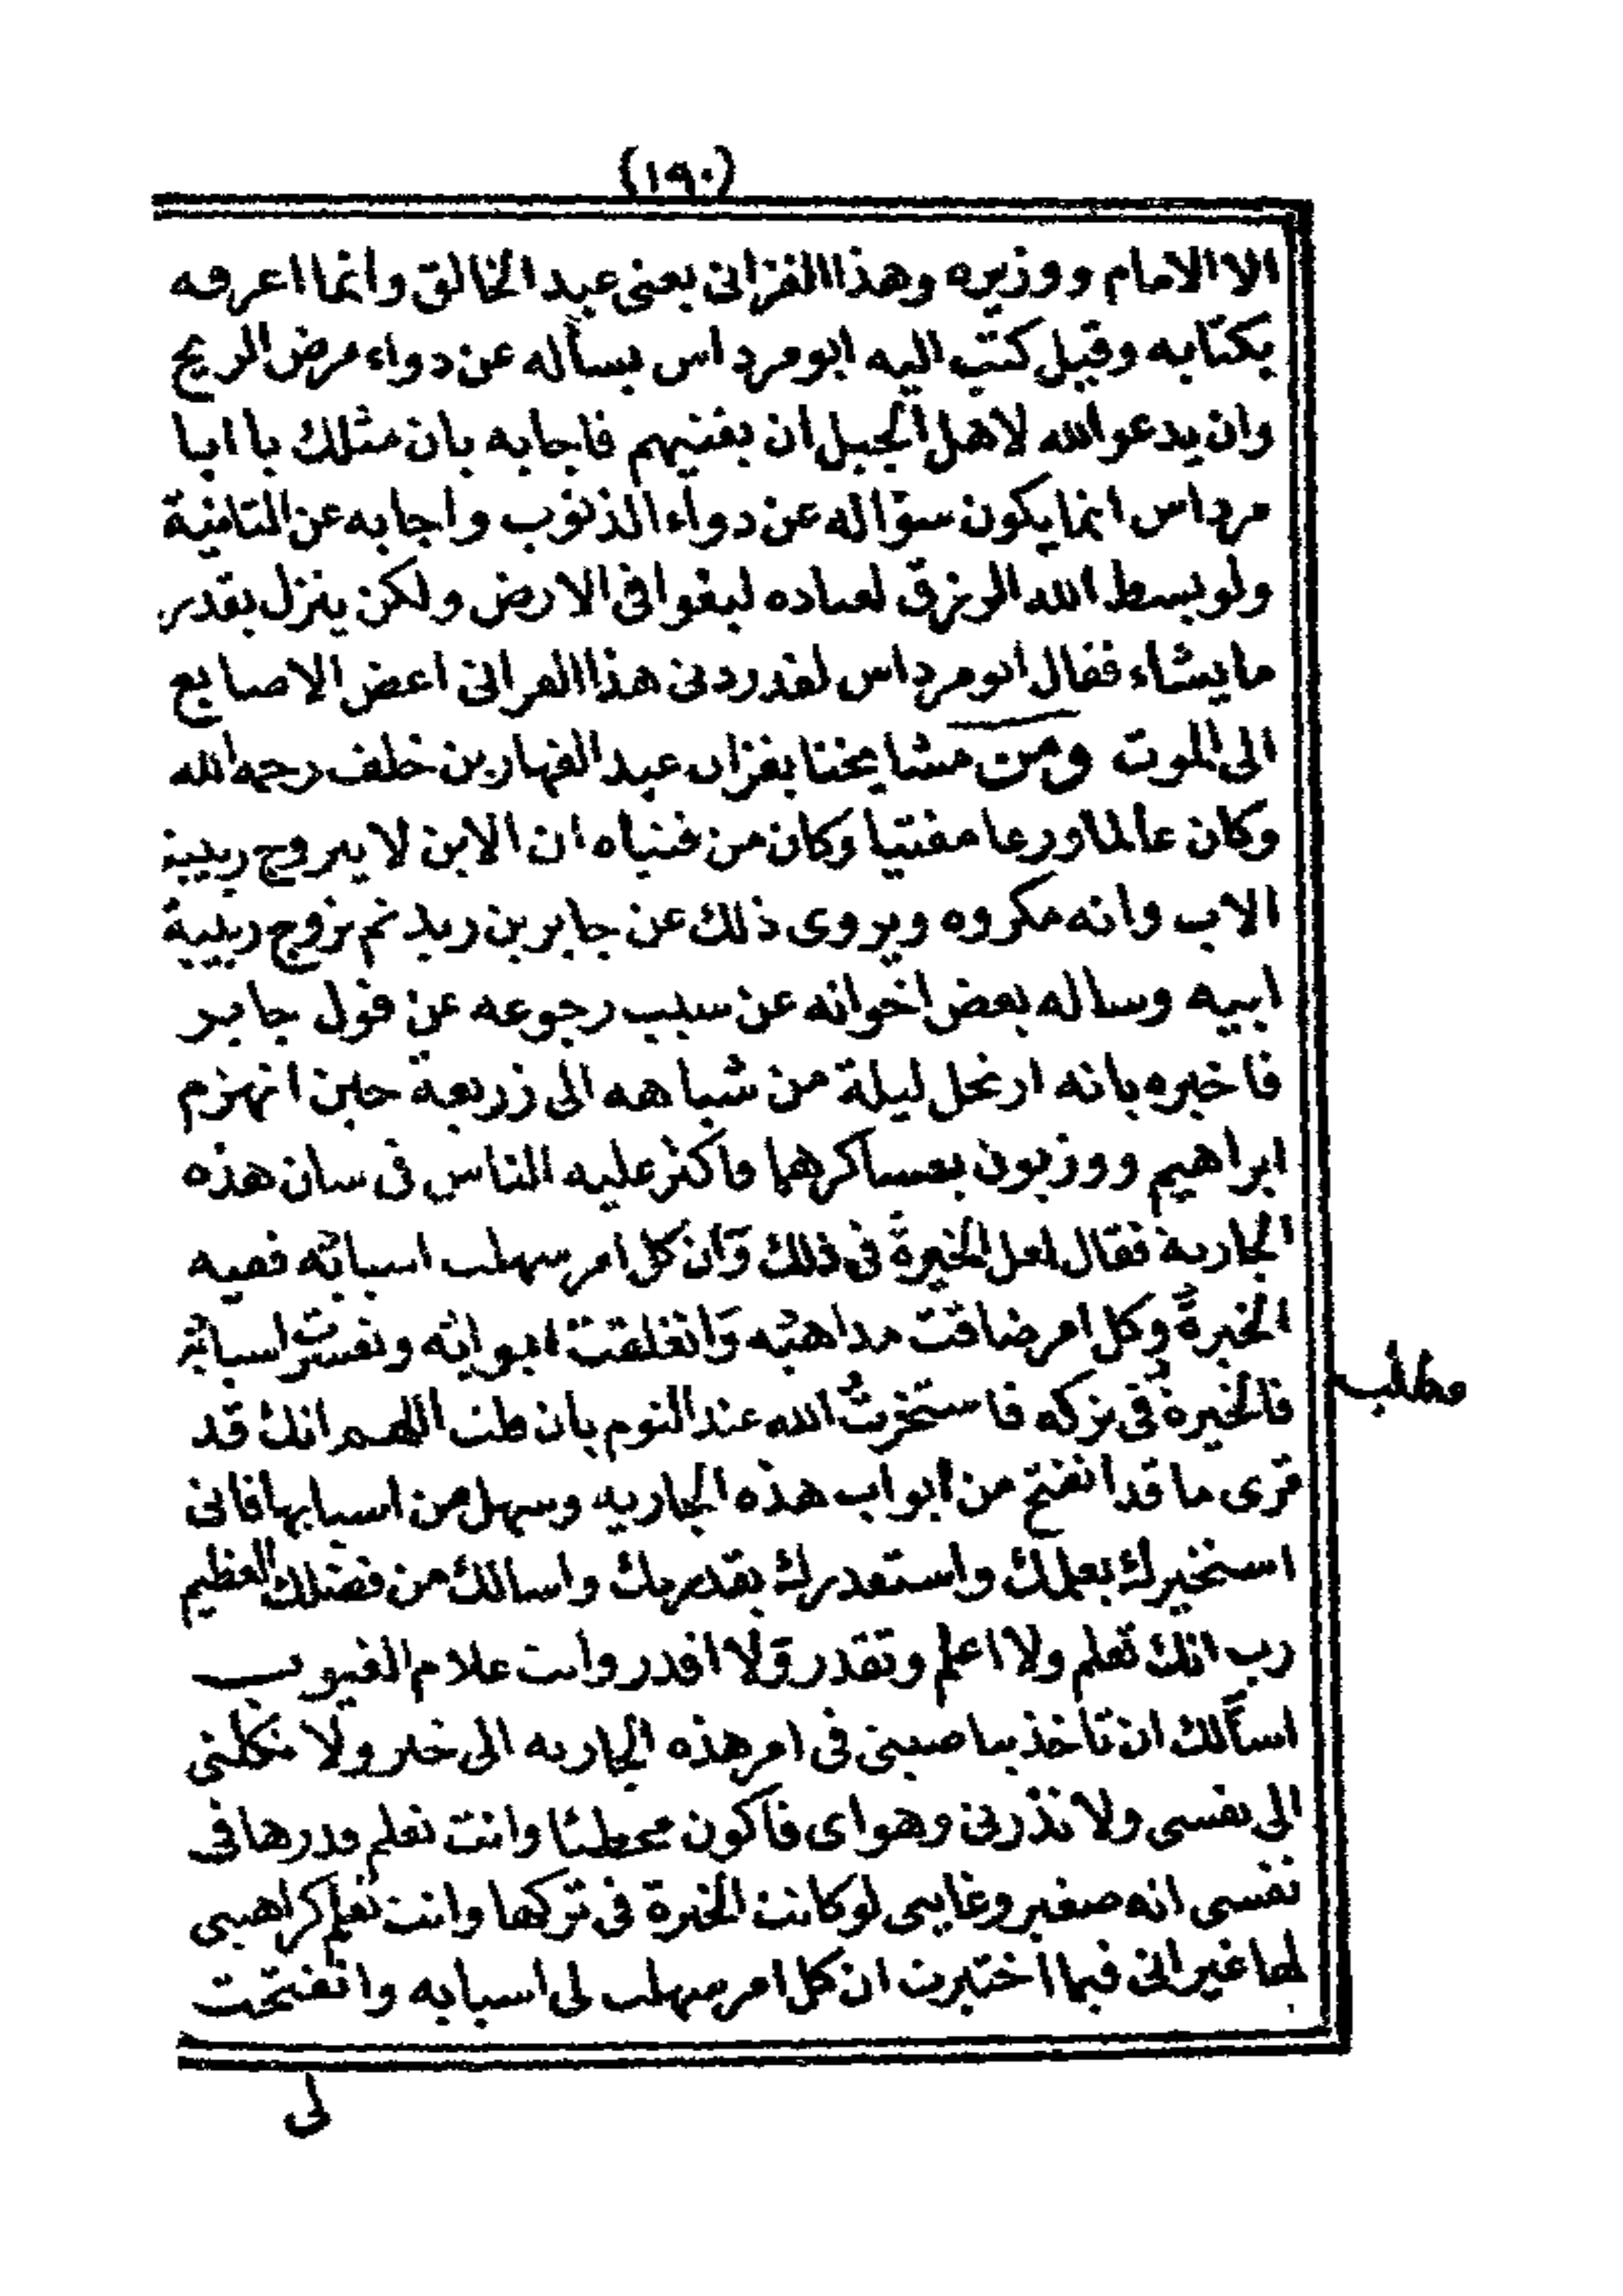 (١٩٠)
الا الامام ووزيره وهذا الفزانى يعنى عبد الخالق وانما اعرفه
بكتابه وقيل كتب اليه ابو مرداس يسأله عن دواء مرض الريح
وان يدعو الله لاهل الجبل ان يغنيهم فاجابه بان مثلك يا ابا
مرداس انما يكون سؤاله عن دواء الذنوب واجابه عن الثانية
ولو بسط الله الرزق لعباده لبغوا فى الارض ولكن ينزل بقدر
ما يشاء فقال ابو مرداس لقد ردنى هذا الفزانى اعض الاصابع
الى الموت ومن مشايخنا بفزان عبد القهار بن خلف رحمه الله
وكان عالما ورعا مفتيا وكان من فتياه ان الابن لا يتزوج ربيبة
الاب وانه مكروه ويروى ذلك عن جابر بن زيد ثم تزوج ربيبة
ابيه وساله بعض اخوانه عن سبب رجوعه عن قول جابر
فاخبره بانه ارتحل ليلة من شباهه الى زريعة حين انهزم
ابراهيم ووزبون بعساكرهما واكثر عليه الناس فى شان هذه
الجارية فقال لعل الخيرة فى ذلك وان كل امر سهلت اسبابه ففيه
الخيرة وكل امر ضاقت مذاهبه وانغلقت ابوابه وتعسرت اسبابه
فالخيرة فى تركه فاستخرت الله عند النوم بان قلت اللهم انك قد
ترى ما قد انفتح من ابواب هذه الجاريه وسهل من اسبابها فانى
استخيرك بعلمك واستقدرك بقدرتك واسالك من فضلك العظيم
رب انك تعلم ولا اعلم وتقدر ولا اقدر وانت علام الغيوب
اسألك ان تاخذ بناصيتى فى امر هذه الجاريه الى خير ولا تكلنى
الى نفسى ولا تذرنى وهواى فاكون مخطئا وانت تعلم قدرها فى
نفسى انه صغير وغايبى لو كانت الخيرة فى تركها وانت تعلم كراهيتى
لها غير انى فيما اختبرت ان كل امر سهلت لى اسبابه وانفتحت
مطلب
لى